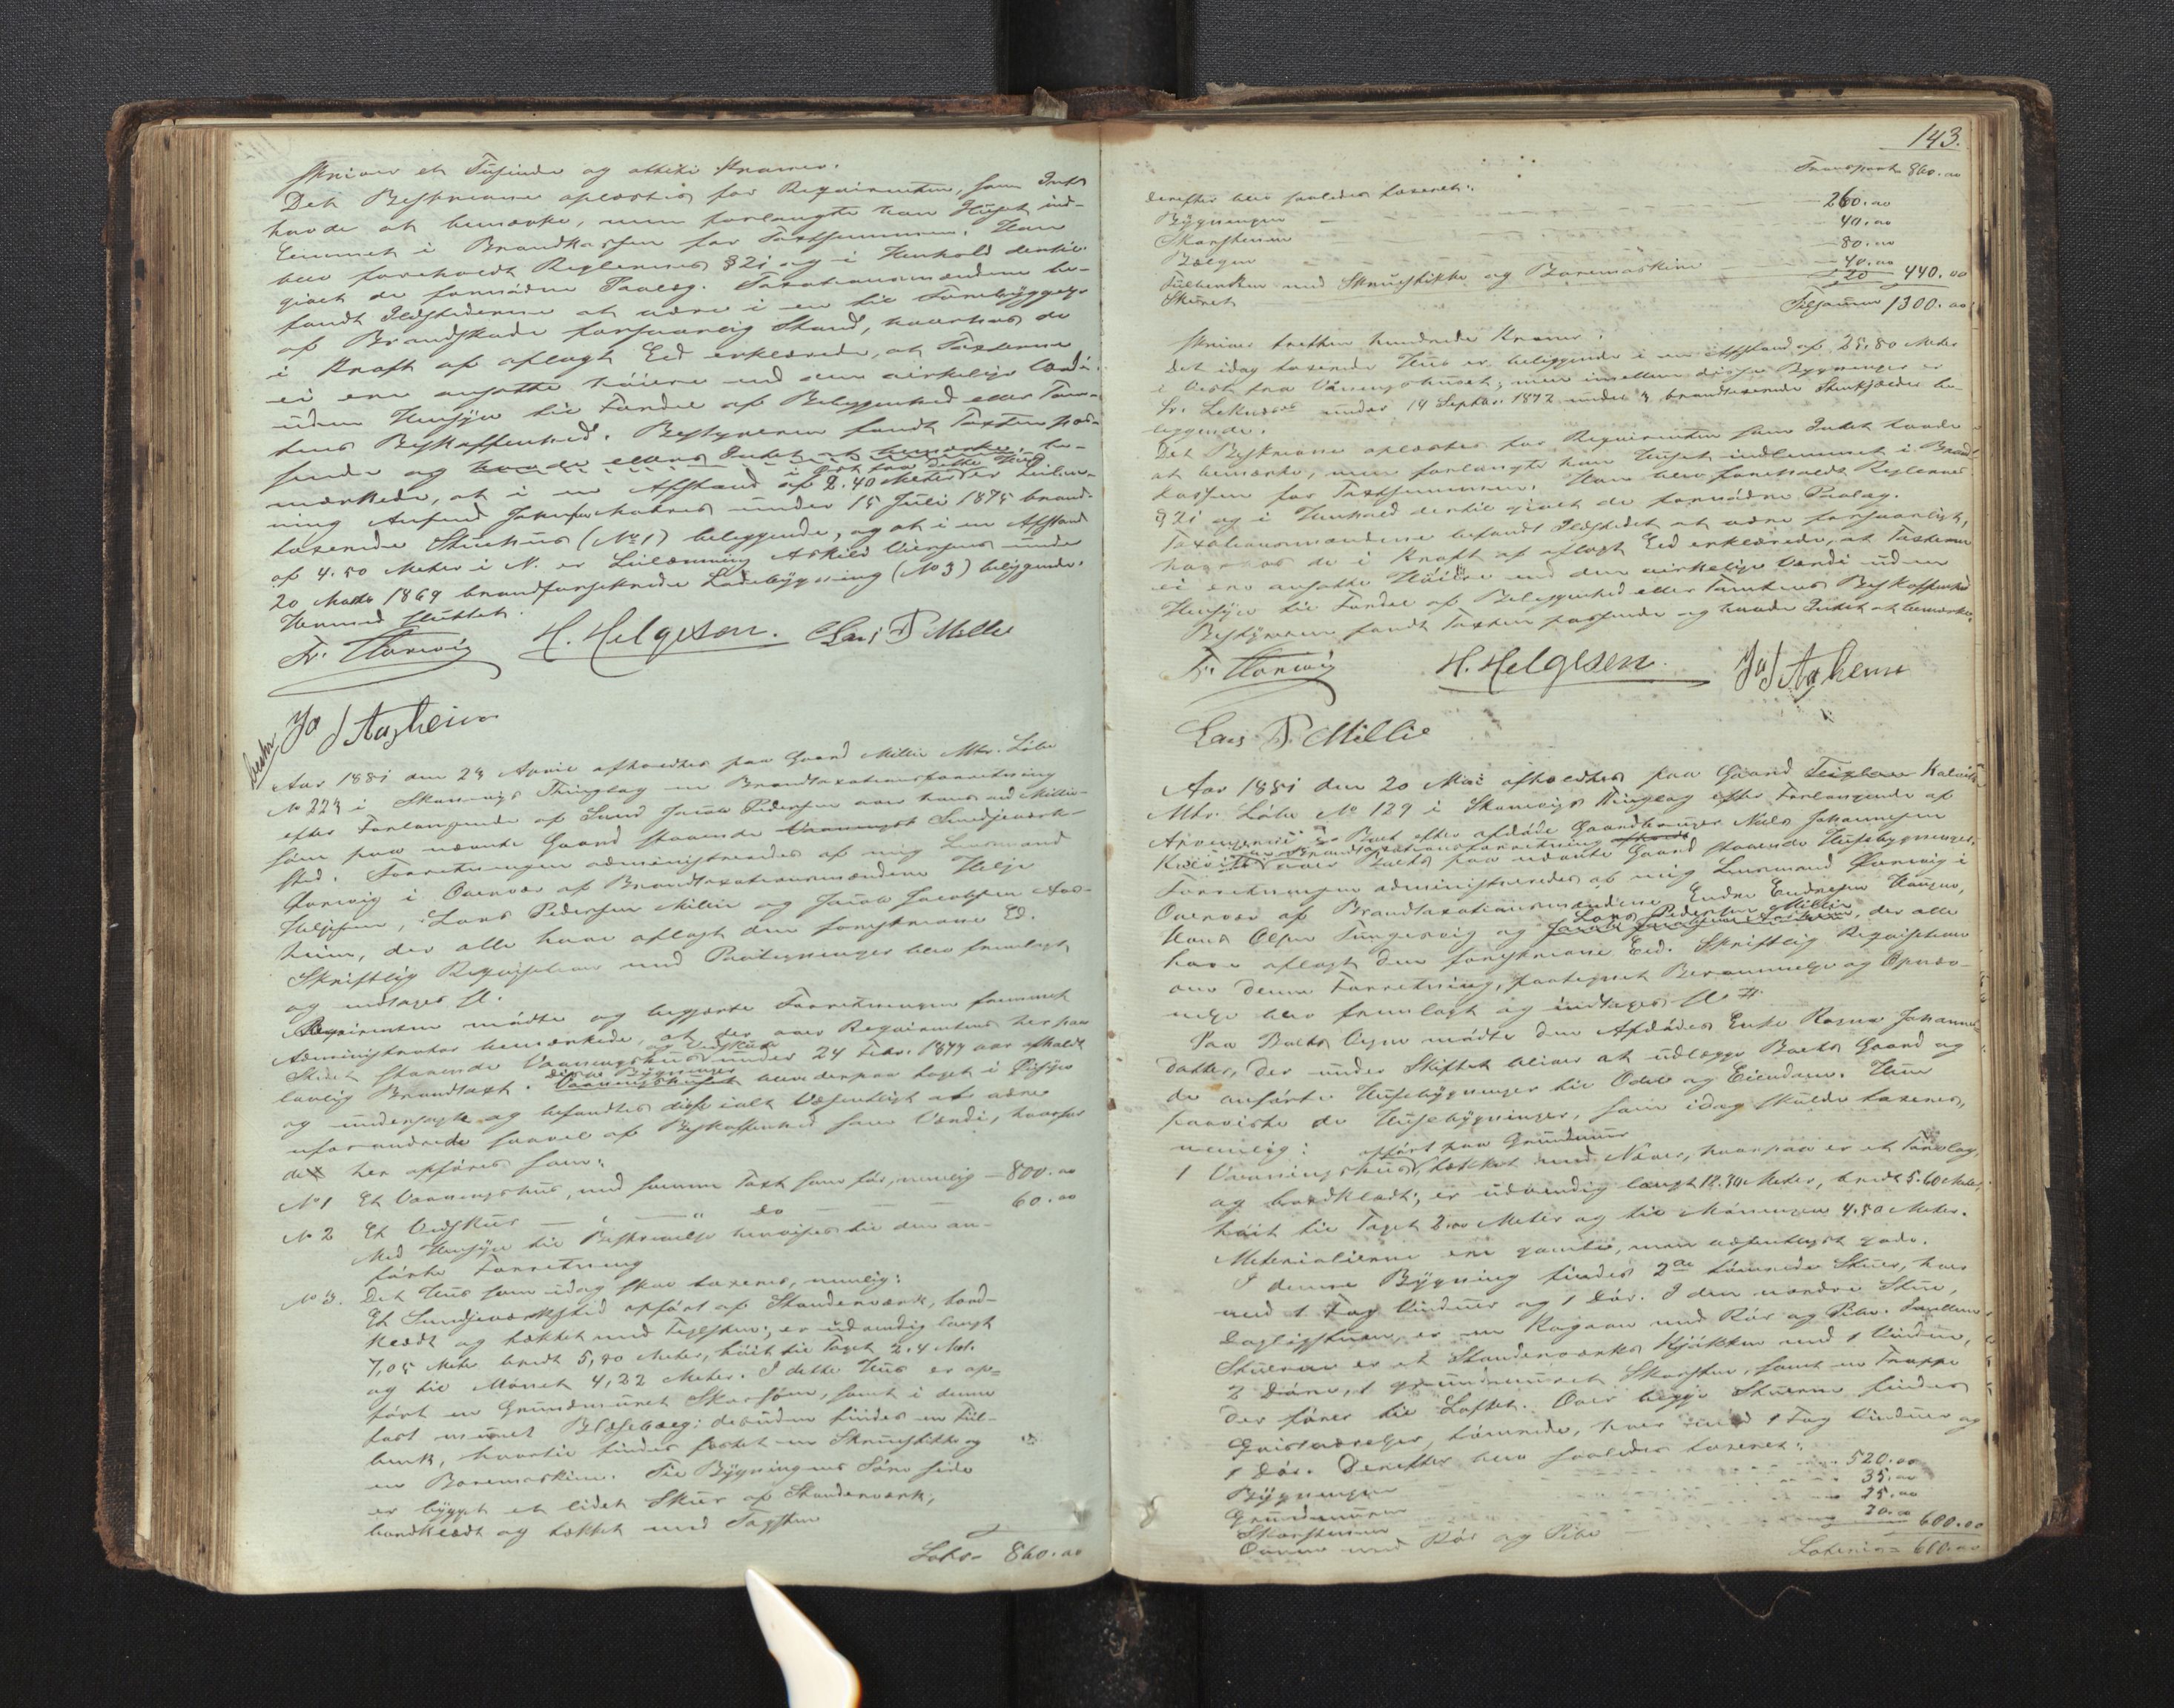 skriver et Tusinde og otteti Kroner.
Det Beskrevne oplæstes for Reqvirenten, som Intet
havde at bemærke, men forlangte han Huset ind-
lemmet i Brandkassen for Taxtsummen. Han
blev foreholdt Reglernes § 21 og i Henhold dertil
givet de fornødne Paalæg. Taxationsmændene be-
fandt Ildstederne at være i en til Forebyggelse
af Brandskade forsvarlig Stand, hvorhos de
i Kraft af aflagt Eed erklærede, at Taxterne
ei ere ansatte høiere end den virkelige Værdi
uden Hensyn til Fordel af Beliggenhed eller Tom-
tens Beskaffenhed. Bestyreren fandt Taxten pas-
sende og havde ellers Intet at bemærke be-
i fra dette Huus
mærkede, at i en Afstand af 2.40 Meter er
ning under 15 Juli 1875 brand-
taxerede Stuehus (No 1) beliggende, og at i en Afstand
af 4.50 Meter i N. er under
20 1869 brandforsikrede Ladebygning (No 3) beliggende.
Hermed sluttet.
Fr. H. Helgesen. Lars P Millie
Ja J Aaheim
Aar 1881 den April afholdtes paa Gaard Millie Mtr. Løbe
No i Skonevigs Thinglag en Brandtaxationsforretning
efter Forlangende af Jacob Pedersen over hans ved
som paa nævnte Gaard staaende Vaanings Smedjeværk-
sted. Forretningen administreredes af mig Lensmand
i Overvær af Brandtaxationsmændene Helje
Helgesen, Lars Pedersen Millie og Jacob Jacobsen Aas-
heim, der alle have aflagt den foreskrevne Ed.
Skriftlig Reqvisition med Paategninger blev fremlagt
og indtages sl.
Reqvirenten mødte og begjærte Forretningen fremmet
Administrator bemærkede, at der over Reqvirentens her paa
og Vedskuur
Stedet staaende Vaaningshus under 24 Febr. 1879 var afholdt
disse Bygninger
lovlig Brandtaxt. Vaaningshuset blev derpaa taget i Øiesyn
og undersøgte og befandtes disse ialt væsentligt at være
uforandrede saavel af Beskaffenhed som Værdi, hvorfor
de her opføres som:
No 1 Et Vaaningshus, med samme Taxt som før, nemlig — 800.00
No 2 Et Vedskur — do — 60.00
Med Hensyn til Beskrivelse henvises til den an-
førte Forretning
No 3. Det Hus som idag skal taxeres, nemlig:
Et Smedjeværksted opført af Standerværk, bord-
klædt og tækket med Teglsten; er udvendig langt
7,05 Meter bredt 5,80 Meter, høit til Taget 2.4 Met.
og til Mønet 4,22 Meter. I dette Hus er op-
ført en Grundmuret Skorsten, samt i denne
fast muret Blæsebælg; desuden findes en Fiil-
benk, hvortil findes fæstet en Skruestikke og
en Boremaskine. Til Bygningens Søre side
er bygget et lidet Skur af Standerværk,
bordklædt og tækket med Tagsten
Latus 860.00
143.
Transport 860.00
Derefter blev saaledes taxeret:
Bygningen 260.00
Skorstenen 40.00
Bælgen 80.00
Fiilbenken med Skruestikke og Boremaskine 40.00
Skuret 20 440.00
Tilsammen 1300.00
skriver tretten hundrede Kroner.
Det idag taxerede Hus er beliggende i en Afstand af 25,80 Meter
i Vest fra Vaaningshuset; men imellem disse Bygninger er
under 14 Septbr. 1872 under brandtaxerede be-
liggende.
Det Beskrevne oplæstes for Reqvirenten som Intet havde
at bemærke, men forlangte han Huset indlemmet i Brand-
kassen for Taxtsummen. Han blev foreholdt Reglernes
§ 21 og i Henhold dertil givet de fornødne Paalæg.
Taxationsmændene befandt Ildstedet at være forsvarligt,
hvorhos de i Kraft af aflagt Eed erklærede, at Taxterne
ei ere ansatte Høiere end den virkelige Værdi uden
Hensyn til Fordel af Beliggenhed eller Tomtens Beskaffenhed
Bestyreren fandt Taxten passende og havde Intet at bemærke.
Fr. H. Helgesen. Ja J Aaheim
Lars P. Millie
Aar 1881 den 20 Mai afholdtes paa Gaard
Mtr. Løbe No 129 i Skonevigs Thinglag efter Forlangende af
i Boet efter afdøde Gaardbruger Niels Johannesen
Brandtaxationsforretning
over Boets paa nævnte Gaard staaende Husebygninger.
Forretningen administreredes af mig Lensmand i
Overvær af Brandtaxationsmændene Endre Endresen
Lars Pedersen Millie
Hans Olsen Tungesvig og Jacob Jacobsen Aasheim, der alle
have aflagt den foreskrevne Eed. Skriftlig Reqvisition
om denne Forretning, paategnet Berammelse og Opnæv-
nelse blev fremlagt og indtages sl #
Paa Boets Vegne mødte den Afdødes Enke Ragna Johannes-
datter, der under Skiftet bliver at udlægge Boets Gaard og
de anførte Husebygninger til Odel og Eiendom. Hun
paaviste de Husebygninger, som idag skulde taxeres,
nemlig:
opført paa Grundmuur
1 Vaaningshus, tækket med Næver, hvorpaa er et Torvlag,
og bordklædt; er udvendig langt 12.30 Meter, bredt 5.60 Meter,
høit til Taget 2.00 Meter og til Mønningen 4.50 Meter.
Materialierne ere gamle, men væsentligst gode.
I denne Bygning findes 2de tømrede Stuer, hver
med 1 Fag Vinduer og 1 Dør. I den nordre Stue,
Dagligstuen, er en Kogeovn med Rør og Pibe. Imellem
Stuerne er et Standerværks Kjøkken med 1 Vindue,
2 Døre, 1 grundmuret Skorsten, samt en Trappe
der fører til Loftet. Over begge Stuerne findes
Qvistværelser, tømrede, hver med 1 Fag Vinduer og
1 Dør. Derefter blev saaledes taxeret:
Bygningen 520.00
Grundmuren 35.00
Skorstenen 25.00
Ovnen med Rør og Pibe 20.00 600.00
Lateris 600.00